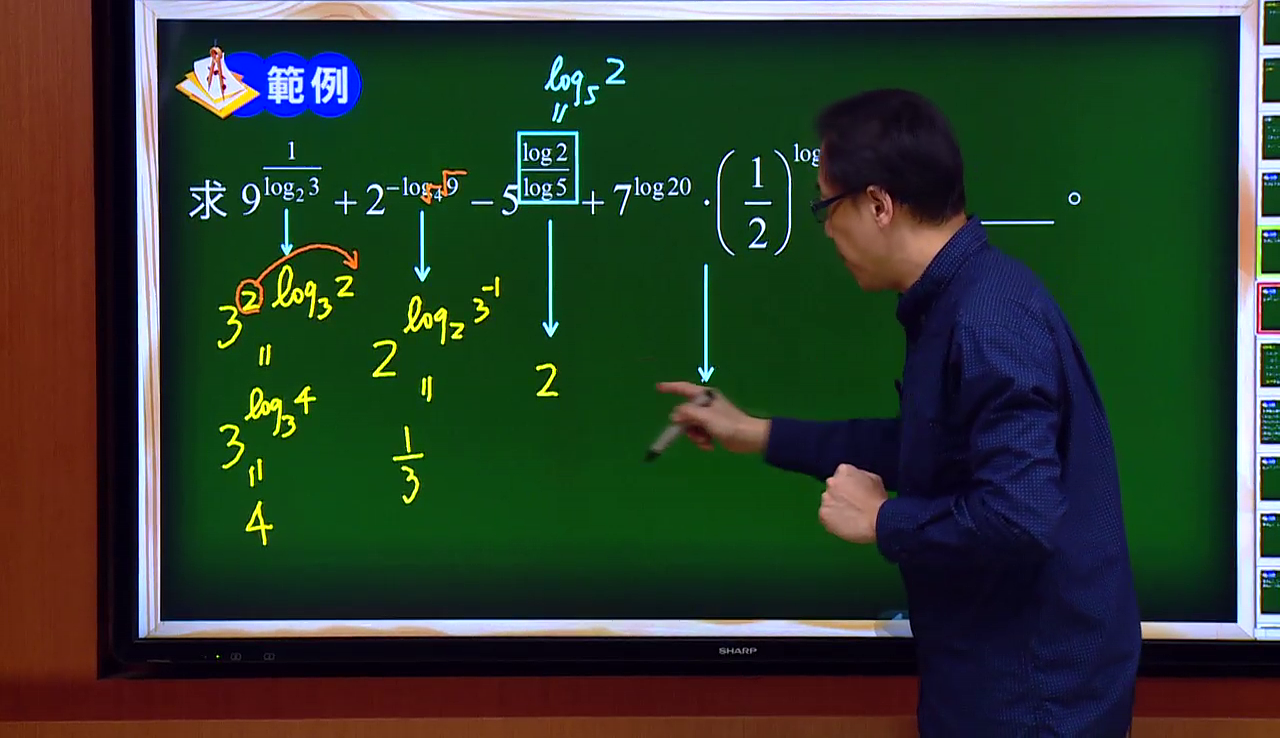 範例
log₅ 2
=
求 9^(1/log₂3) + 2^(-log₄9) - 5^(log2/log5) + 7^(log20) · (1/2)^(log ____ 。
√ √
3^(2 log₃ 2)
=
3^(log₃ 4)
=
4
2^(log₂ 3⁻¹)
=
1/3
2
SHARP